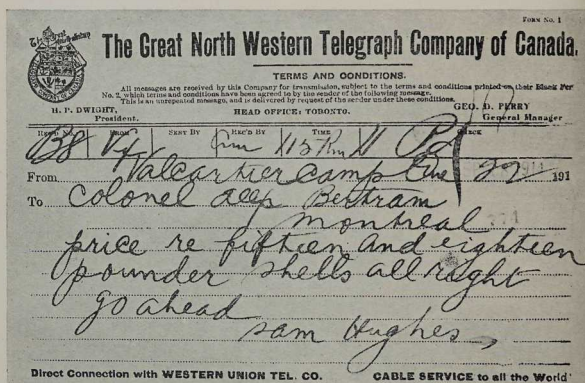 FORM No. 1
The Great North Western Telegraph Company of Canada.
TERMS AND CONDITIONS.
All messages are received by this Company for transmission, subject to the terms and conditions printed their Blank For
No. 2, which terms and conditions have been agreed to by the sender of the following message.
This is an unrepeated message, and is delivered by request of the sender under these conditions.
H. P. DWIGHT, President.
HEAD OFFICE: TORONTO.
GEO. D. PERRY General Manager
SENT BY REC'D BY TIME CHECK
From Valcartier Camp Que 22 191
To Colonel Bertram
Montreal
price re fifteen and eighteen
pounder shells all right
go ahead
Sam Hughes
Direct Connection with WESTERN UNION TEL. CO. CABLE SERVICE to all the World